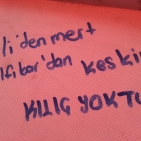 li'den mert
lfikar'dan keski
KILIG YOKTU